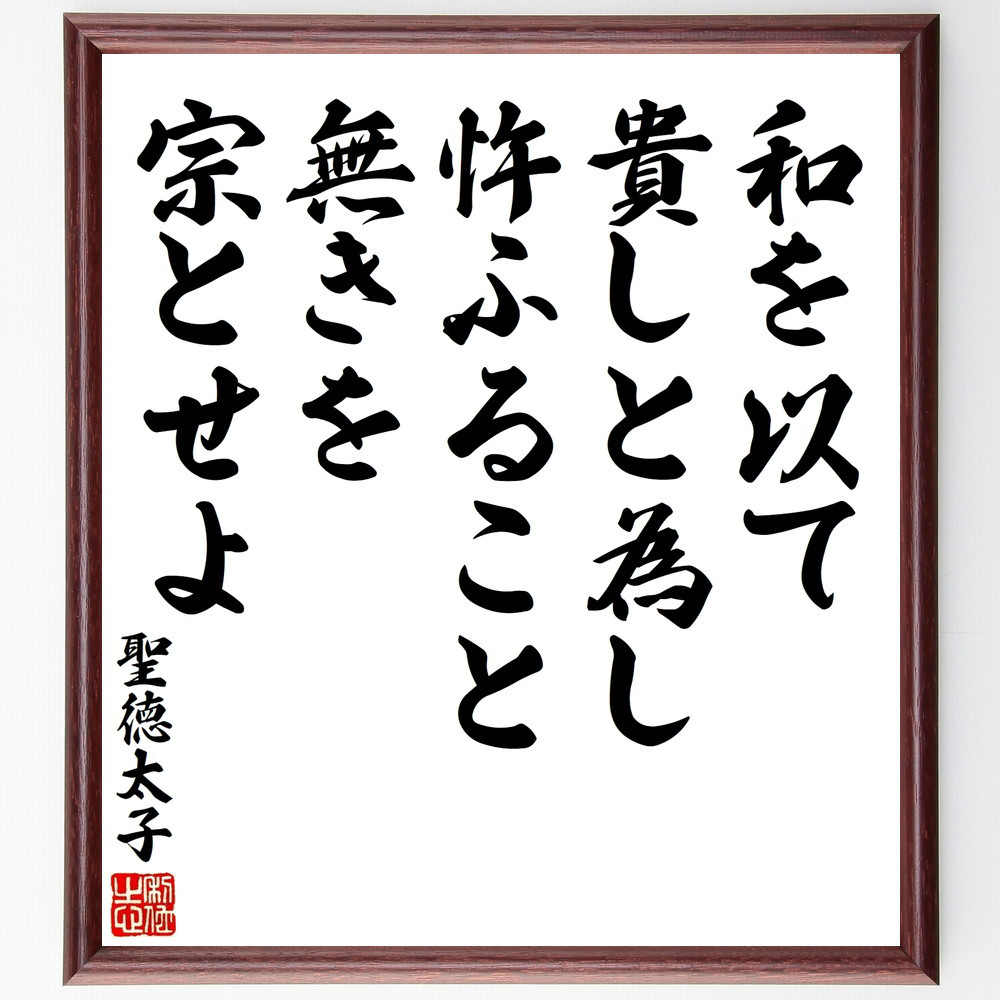 和を以て
貴しと為し
忤ふること
無きを
宗とせよ
聖徳太子